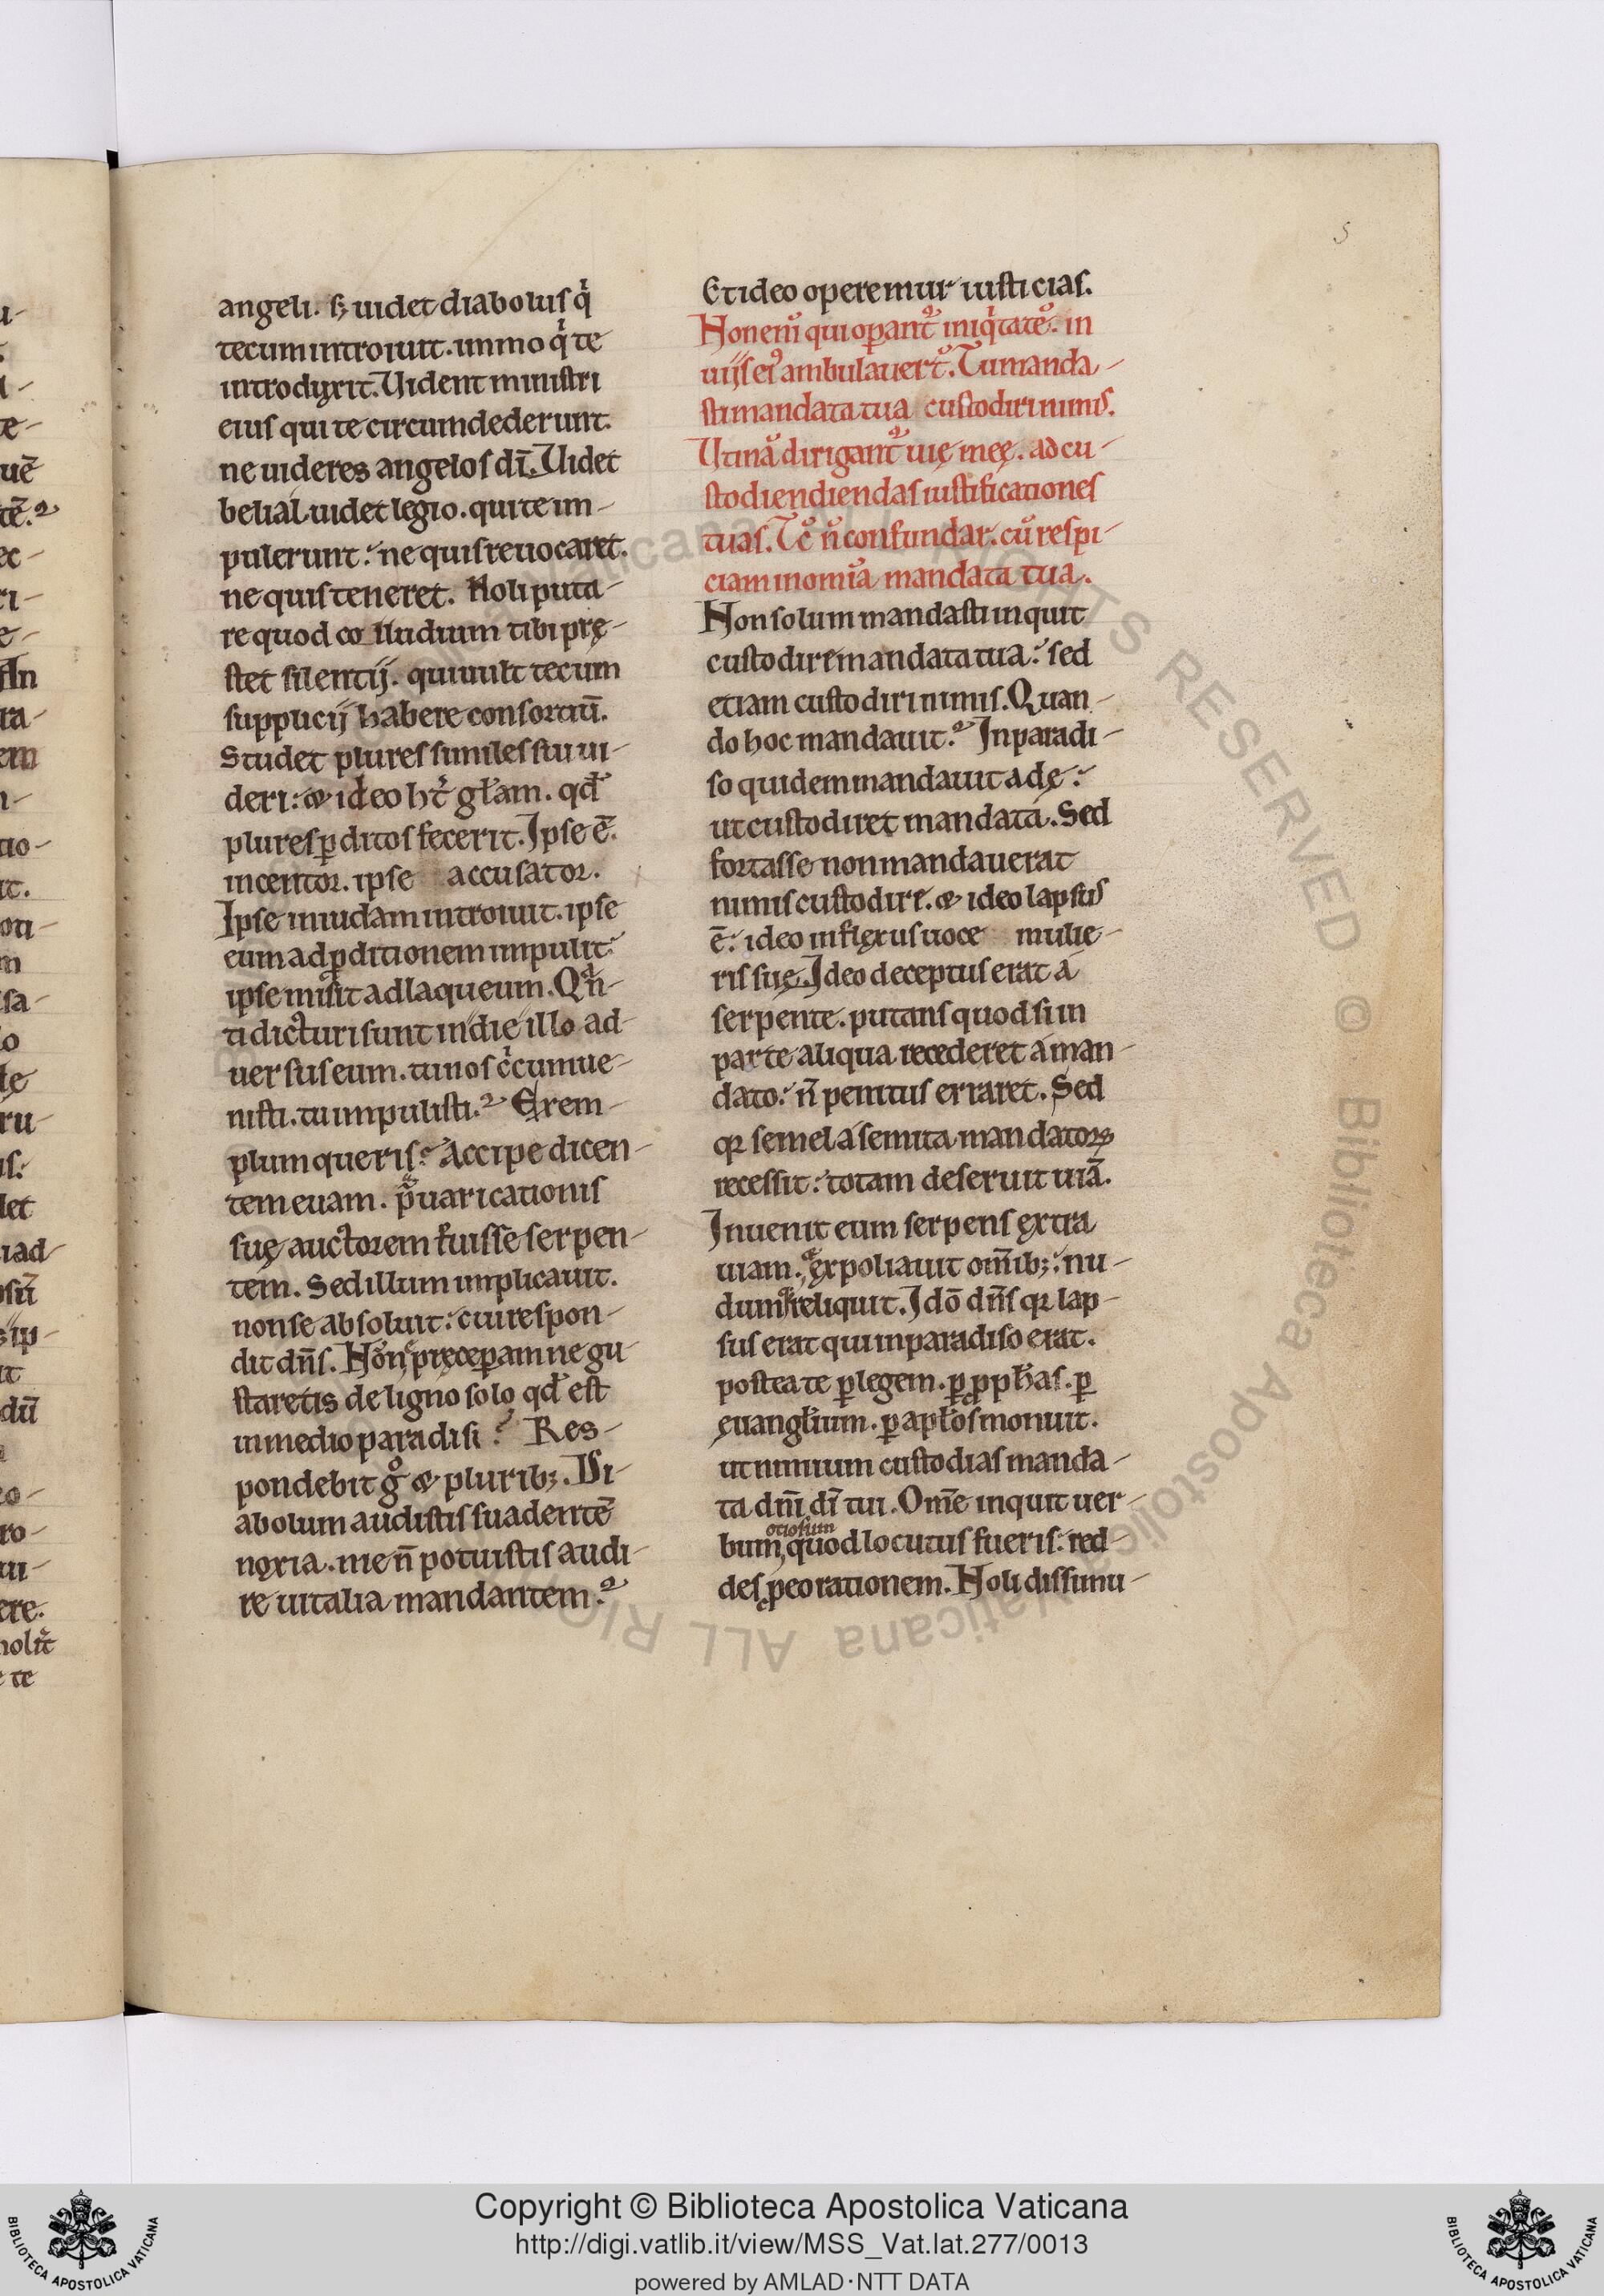 angeli. sꝫ uidet diabolus qͥ
tecum introiuit. immo qͥ te
introduxit. Uident ministri
eius qui te circumdederunt.
ne uideres angelos dī. Uidet
belial. uidet legio. qui te im-
pulerunt. ne quis reuocaret.
ne quis teneret. Noli puta-
re quod colludium tibi prę-
stet silentij. qui uult tecum
supplicij habere consortiū.
Studet plures similes sui ui-
deri: & ideo ht̓ gl̓am. qd̓
plures ꝑditos fecerit. Ipse ē.
incentor. ipse accusator.
Ipse in iudam introiuit. ipse
eum ad ꝑditionem impulit.
ipse misit ad laqueum. Qͣn-
ti dicturi sunt in die illo ad-
uersus eum. tu nos cͥcumue-
nisti. tu impulisti.? Exem-
plum queris? Accipe dicen-
tem euam. p̄uaricationis
suę auctorem fuisse serpen-
tem. Sed illum implicauit.
non se absoluit: cui respon-
dit dn̄s. Nonͤ pręceperam ne gu-
staretis de ligno solo qd̓ est
in medio paradisi? Res-
pondebit gͦ & pluribꝫ. Di-
abolum audistis suadentē
noxia. me n̄ potuistis audi-
re uitalia mandantem?
Et ideo operemur iusticias.
Non enī qui oꝑant᷑ iniqͥtatē. in
uijs ei᷒ ambulauer̄t. Tu manda-
sti mandata tua custodiri nimis.
Utinā dirigant᷑ uię meę. ad cu-
stodiendiendas iustificationes
tuas. Tc̄ n̄ confundar. cū respi-
ciam in om̄ia mandata tua.
Non solum mandasti inquit
custodire mandata tua: sed
etiam custodiri nimis. Quan-
do hoc mandauit? In paradi-
so quidem mandauit adę:
ut custodiret mandata. Sed
fortasse non mandauerat
nimis custodire. & ideo lapsus
ē. ideo inflexus uoce mulie-
ris suę. Ideo deceptus erat á
serpente. putans quod si in
parte aliqua recederet á man-
dato. n̄ penitus erraret. Sed
qꝛ semel á semita mandatoꝝ
recessit: totam deseruit uiā.
Inuenit eum serpens extra
uiam. & expoliauit om̄ibꝫ: nu-
dum & reliquit. Idō dn̄s qꝛ lap-
sus erat qui in paradiso erat.
postea te ꝑ legem. ꝑ pph̓as. ꝑ
euangl̓ium. ꝑ apl̓os monuit.
ut nimium custodias manda-
ta dn̄i dī tui. Om̄e inquit uer-
otiosum
bum, quod locutus fueris: red-
des ꝓ eo rationem. Noli dissimu-
5
Copyright © Biblioteca Apostolica Vaticana
http://digi.vatlib.it/view/MSS_Vat.lat.277/0013
powered by AMLAD·NTT DATA